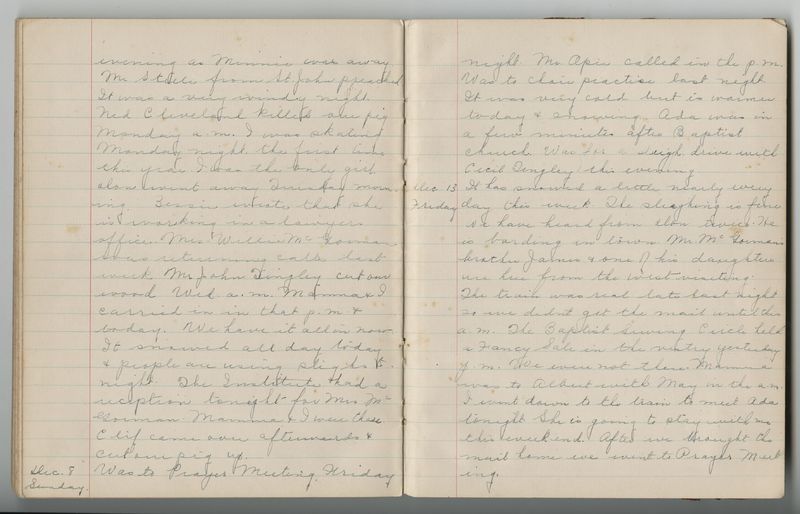 evening as Minnie was away
Mr Steele from St John preached
It was a very windy night.
Ned Cleveland killed our pig
Monday a.m. I was skating
Monday night the first time
this year I was the only girl
Alon went away Tuesday morn
ing. Bessie writes that she
is working in a lawyers
office. Mrs Willie Mc Gorman
was returning calls last
week. Mr John Tingley cut our
wood Wed. a.m. Mamma & I
carried in in that p.m. &
today. We have it all in now
It snowed all day today
& people are using sleighs to
night. The Institute had a
reception tonight for Mrs Mc
Gorman Mamma & I were there.
Clif came over afterwards &
cut our pig up.
Dec. 8 Sunday
Was to Prayer Meeting Friday
night. Mr Apse called in the p.m.
Was to choir practise last night
It was very cold but is warmer
today & snowing. Ada was in
a few minutes after Baptist
church. Was for a sleigh drive with
Cecil Tingley this evening
Dec 13 Friday
It has snowed a little nearly every
day this week. The sleighing is fine
We have heard from Alon twice. He
is bording in town. Mr. Mc Gorman's
brother James & one of his daughters
are here from the west visiting.
The train was real late last night
so we didnt get the mail until this
a.m. The Baptist Sewing Circle held
a Fancy Sale in the vestry yesterday
p.m. We were not there. Mamma
was to Albert with May in the a.m.
I went down to the train to meet Ada
tonight She is going to stay with me
this weekend. After we brought the
mail home we went to Prayer Meet
ing.